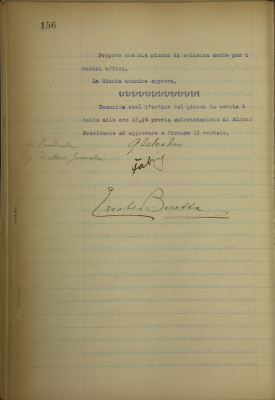 156
Propone che sia giorno di chiusura anche per i
nostri uffici.
La Giunta unanime approva.
Esaurito così l'ordine del giorno la seduta è
tolta alle ore 19,50 previa autorizzazione al Signor
Presidente ad approvare e firmare il verbale.
Il Presidente
Il Direttore Generale
Ercole Beretta